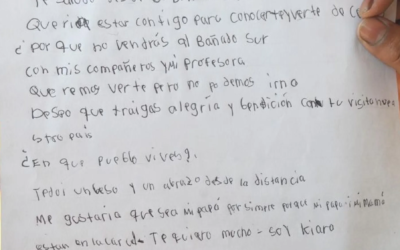 Querido estar contigo para conocerte y verte de ce
¿por que no vendrás al Bañado Sur
con mis compañeros y mi profesora
Queremos verte pero no podemos irno
Deseo que traigas alegría y bendición con tu visita nue
stro pais
¿En que pueblo vives?.
Te doi un beso y un abrazo desde la distancia
Me gustaria que sea mi papá por siempre porque mi papa i mi mamá
estan en la carcel. Te quiero mucho - soy Kiara